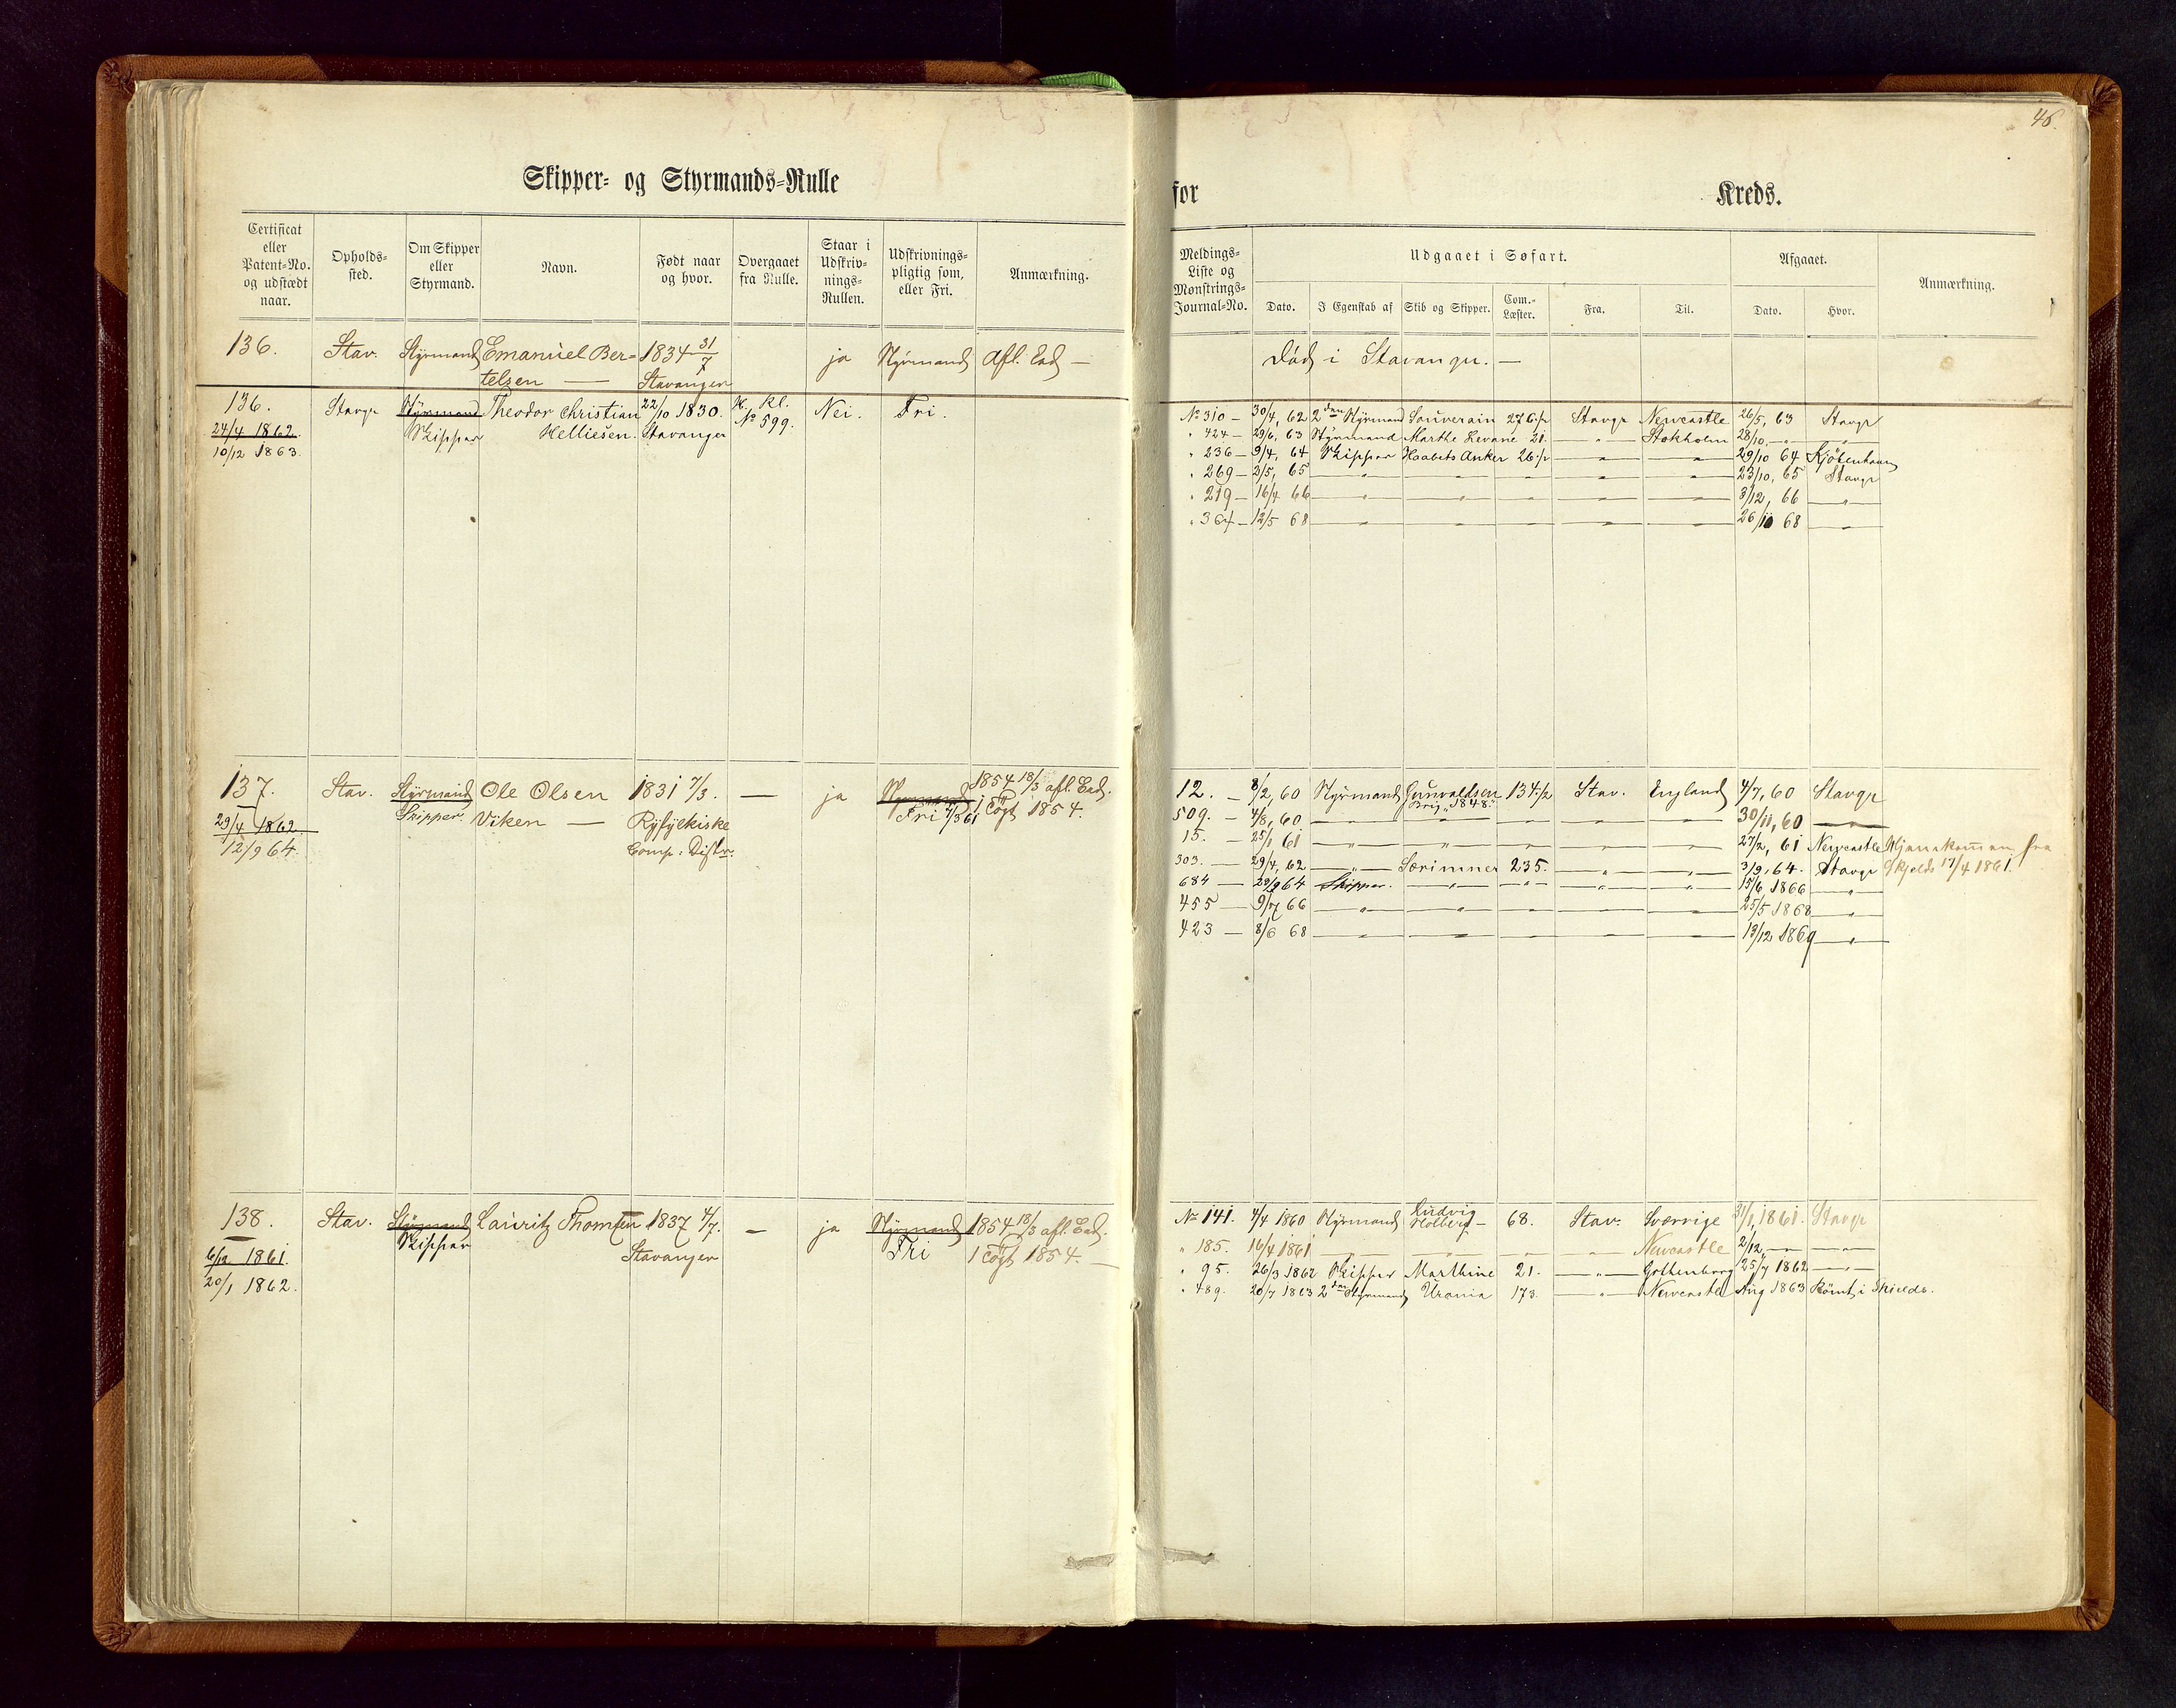 46.
Skipper- og Styrmands-Rulle
for Kreds.
Certificat eller Patent-No. og udstædt naar.
Opholds-sted.
Om Skipper eller Styrmand.
Navn.
Født naar og hvor.
Overgaaet fra Rulle.
Staar i Udskriv-nings-Rullen.
Udskrivnings-pligtig som, eller Fri.
Anmærkning.
Meldings-Liste og Mønstrings-Journal-No.
Udgaaet i Søfart.
Dato.
I Egenskab af
Skib og Skipper.
Com.-Læster.
Fra.
Til.
Afgaaet.
Dato.
Hvor.
Anmærkning.
136. Stav. Styrmand Emanuel Ber- 1834 31/7 ja Styrmand Afl. Ead — Död i Stavanger. —
telsen — Stavanger
136. Stavgr Styrmand Theodor Christian 22/10 1830. H. kl. Nei. Fri.
24/4 1862. Skipper Helliesen. Stavanger № 599.
10/12 1863.
№ 310 — 30/4, 62 2den Styrmand Souverain 276 1/2 Stavgr Newcastle 26/5, 63 Stavgr
" 424 — 29/6, 63 Styrmand Marthe Levane 21. — " — Stokholm 28/10 — " — — " —
" 236 — 9/4, 64 Skipper Haabets Anker 26 1/2 — " — — " — 29/10 64 Kjöbenhavn
" 269 — 2/5, 65 — " — — " — — " — — " — — " — 23/10, 65 Stavgr
" 219 — 16/4 66 — " — — " — — " — — " — — " — 3/12, 66 — " —
" 364 — 12/5 68 — " — — " — — " — — " — — " — 26/10 68 — " —
137. Stav. Styrmand Ole Olsen 1831 7/3. — ja Styrmand 1854 18/3 afl. Ead.
29/4 1862. Skipper Viken — Ryfylkiske Fri 4/3 61 1 Togt 1854.
12/9 64. Comp: Distr:
12. — 8/2, 60 Styrmand Gunvaldsen 134 1/2 Stav. England 4/7, 60 Stavgr
Brig "1848"
509. — 4/8, 60 — " — — " — — " — — " — — " — 30/11, 60 — " —
15. — 25/1 61 — " — — " — — " — — " — — " — 27/2, 61 Newcastle Hjemkommen fra
303. — 29/4, 62 — " — Særimner 235. — " — — " — 3/9, 64. Stavgr Skjelds 17/4 1861.
684 — 29/9 64 Skipper. — " — — " — — " — — " — 15/6 1866 — " —
455 — 9/7 66 — " — — " — — " — — " — — " — 25/5 1868 — " —
423 — 8/6 68 — " — — " — — " — — " — — " — 13/12 1869 — " —
138. Stav. Styrmand Lauritz Thomsen 1837 4/7. — ja Styrmand 1854 18/3 afl. Ead.
6/12 1861. Skipper Stavanger Fri 1 Togt 1854. —
20/1 1862.
№ 141. 4/4 1860 Styrmand Ludvig Holberg — 68. Stav. Sverrige 31/1, 1861. Stavgr
" 185. 16/4 1861 — " — — " — — " — — " — Newcastle 2/12, — " — — " —
" 95. 26/3 1862 Skipper Marthine 21. — " — Gothenborg 25/7 1862 — " —
" 489. 20/7 1863 2den Styrmand Urania 173. — " — Newcastle Aug 1863 Römt i Shields.